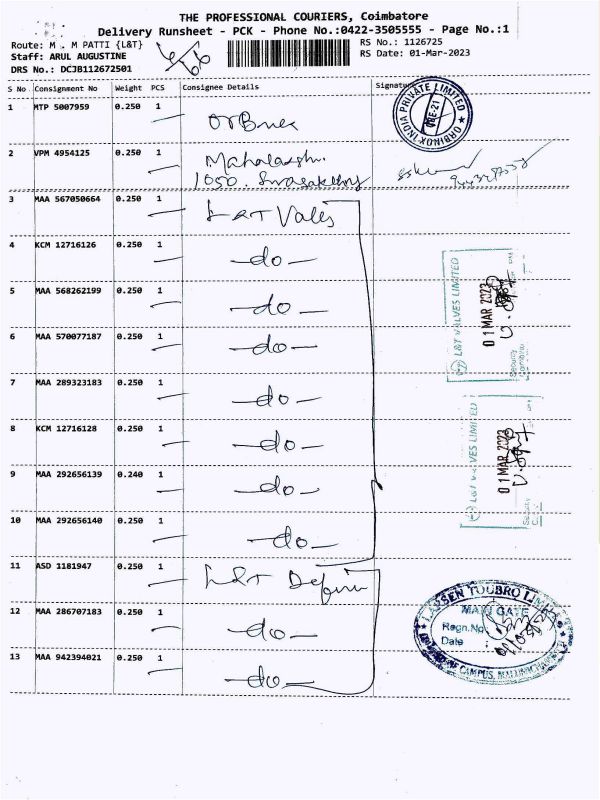 THE PROFESSIONAL COURIERS, Coimbatore
Delivery Runsheet - PCK - Phone No.:0422-3505555 - Page No.:1
Route: M . M PATTI {L&T}
RS No.: 1126725
Staff: ARUL AUGUSTINE
RS Date: 01-Mar-2023
DRS No.: DCJB112672501
S No Consignment No Weight PCS Consignee Details Signature
1 MTP 5007959 0.250 1
ORBINOX INDIA PRIVATE LIMITED
2 VPM 4954125 0.250 1
1050.
3 MAA 567050664 0.250 1 L&T Valves
4 KCM 12716126 0.250 1 -do-
5 MAA 568262199 0.250 1 -do-
6 MAA 570077187 0.250 1 -do-
7 MAA 289323183 0.250 1 -do-
8 KCM 12716128 0.250 1 -do-
9 MAA 292656139 0.240 1 -do-
10 MAA 292656140 0.250 1 -do-
11 ASD 1181947 0.250 1 L&T
12 MAA 286707183 0.250 1 -do-
13 MAA 942394021 0.250 1 -do-
L&T VALVES LIMITED
01 MAR 2023
Security
L&T VALVES LIMITED
01 MAR 2023
Security
MAIN GATE
Regn.No.
Date :